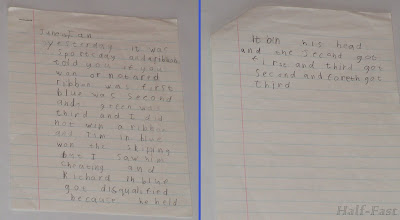 yesterday it was
sportsday and a ribbon
told you if you
won or not a red
ribbon was first
blue was second
and green was
third and I did
not win a ribbon
and Tim in blue
won the skipping
but I saw him
cheating and
Richard in blue
got disqualified
because he held
it on his head
and the second got
first and third got
second and foreth got
third
Half-Fast